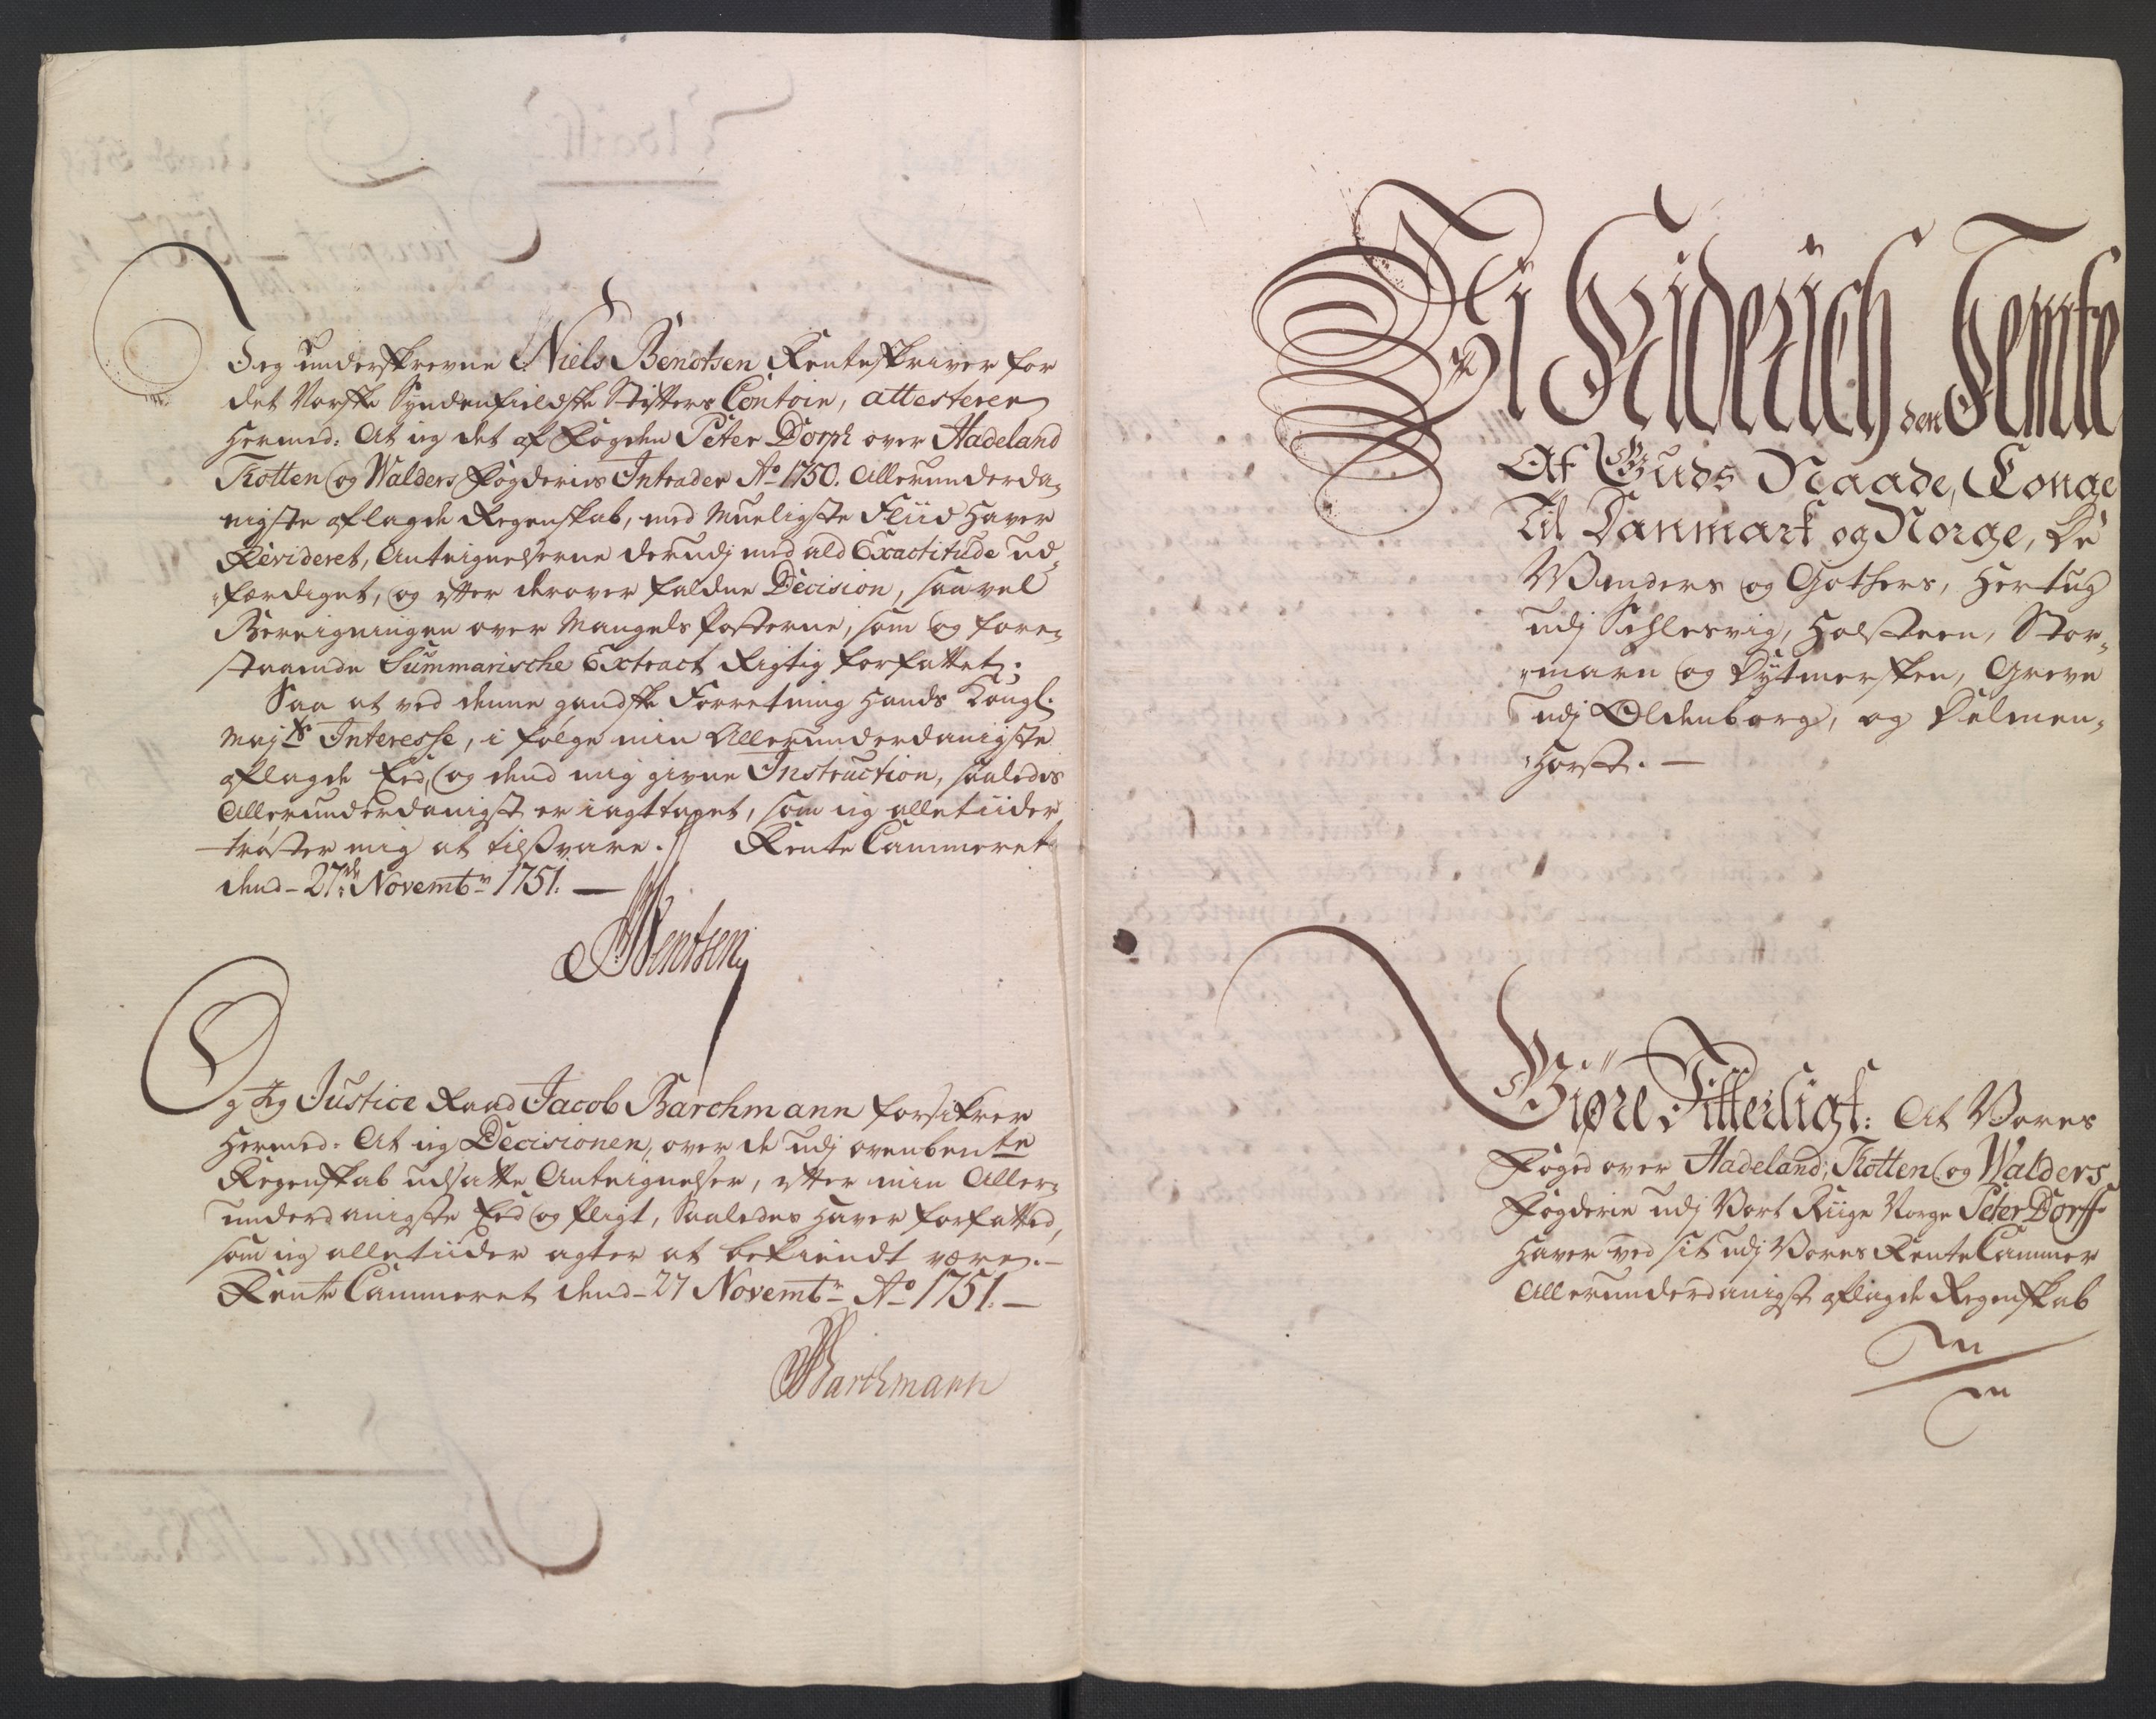 Jeg underskrevne Niels Bendtsen Renteskriver for
det Norske Syndenfieldske Stifters Contoir, attesterer
hermed: At jeg det af Fogden Peter Dorph over Hadeland
Totten og Walders Fogderies Intrader Ao 1750. Allerunderda-
nigste aflagde Regenskab, med Mueligste Fliid haver
Revideret, Antegnelserne derudj med ald Exactitude ud-
færdiget, og efter derover faldne Decision, saavel
Beregningen over Mangels Posterne, som og fore-
staaende Summarische Extract Rigtig forfattet.
Saa at ved denne gandske Forretning Hands Kongl.
Majts Interesse, i følge min Allerunderdanigste
aflagde Eed, og dend mig givne Instruction, saaledes
Allerunderdanigst er iagttaget, som jeg alletiider
trøster mig at tilsvare. // Rente Cammeret
dend 27de Novembr 1751. —
NBentsen
Og Jeg Justice Raad Jacob Barchmann forsikrer
hermed: At jeg Decisionen, over de udj ovenbente
Regenskab udsatte Antegnelser, efter min Aller-
underdanigste Eed og Pligt, Saaledes haver forfatted,
som jeg alletiider agter at bekiendt være. —
Rente Cammeret dend 27 Novembr Ao 1751. —
JBarchmann
Vi Friderich den Femte
Af Guds Naade, Konge
Til Danmark og Norge, De
Wenders og Gothers, Hertug
udj Schlesvig, Holsteen, Stor-
marn og Dytmersken, Greve
udj Oldenborg, og Delmen-
horst. —
Giøre Vitterligt: At Vores
Foged over Hadeland, Totten og Walders
Fogderie udj Vort Riige Norge Peter Dorff
haver ved sit udj Vores Rente Cammer
Allerunderdanigst aflagde Regenskab